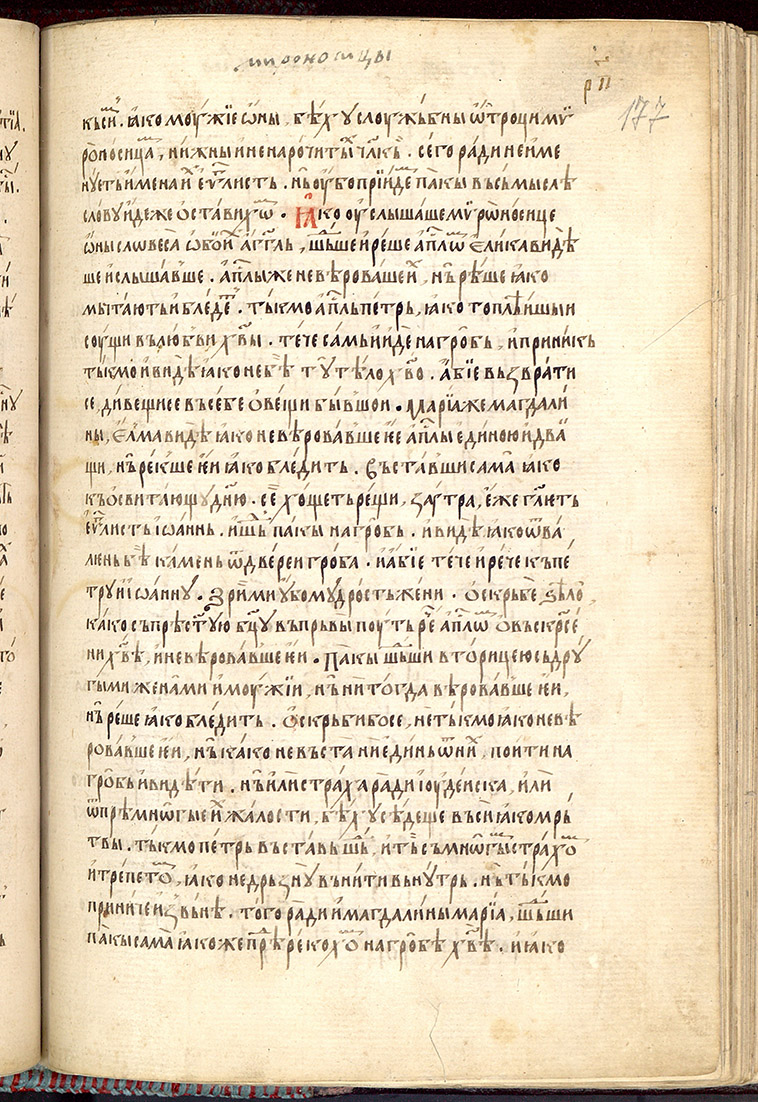 мироносицы
р п
177
къси꙯. ꙗко моу́жїе ѡ́ны, бѣ́хꙋ слоу́жьбны ѿ троци мѵ
роно́сица꙯, ни́жны и ненарочи́тых чл҃кь. сего̀ ра́ди не и́ме
нꙋеть и́мена и꙯ еѵ҃листь. нь оу҆́бо прїи́де па́кы въ съмысле
словꙋ и́деже о҆ста́вихѡ꙯. Ꙗ҆́ко оу҆слы́шаше мѵрѡно́сице
ѡ́ны словеса̀ ѡбои꙯ а҆́гг҃ль, шь́ше и҆ ре́ше а҆п҃лѡ꙯ е҆ли́ка ви́дѣ
ше и҆ слы́шавше. а҆п҃лы же не вѣ́роваше и꙯, нь рѣ́ше ꙗ҆ко
мьта́ють и҆ бле́де꙯. ты́кмо а҆п҃ль пе́трь, ꙗ҆ко топлѣ́ишыи
соу́щи въ лю́бви х҃вы. те́че са́мь и҆ и҆́де на гро́бь, и҆ прини́кь
ты́кмо и҆ ви́дѣ ꙗ҆ко не бѣ̀ тꙋ тѣ́ло х҃во. а҆́бїе възвра́ти
се, ди́веще се въ се́бе о҆ ве́щи бы́вшои. Марїа же магдали́
ны, е҆́лма ви́дѣ ꙗ҆ко не вѣ́ровавше ѥе а҆п҃лы е҆ди́ною и҆ два́
щи, нь ре́кше ѥи ꙗ҆ко бле́дить. Въста́вши сама̀ ꙗ҆ко
къ осви́тающꙋ дн҃ю. се꙯ хо́щеть ре́щи, за́ѵтра, е҆́же гл҃ть
еѵ҃листь і҆ѡа́ннь. и҆ шь́ пакы на гро́бь. и҆ ви́дѣ ꙗ҆ко ѿва́
лень бѣ̀ ка́мень ѿ две́реи гро́ба. и҆ а҆́бїе те́че и҆ ре́че къ пе́
трꙋ и҆ і҆ѡа́ннꙋ. Зри́ ми ᲂу҆бо мꙋ́дрость же́ни. о҆скрьбе ѕѣ́ло,
ка́ко съ прѣст҃ꙋю бц҃ꙋ въ прьвы поу́ть рѐ а҆п҃лѡ꙯ о҆ въскрс҃е́
ни х҃вѣ, и҆ не вѣ́ровавше ѥи. Па́кы шь́ши втори́цею съ дрꙋ́
гыми жена́ми и҆ моу́жїи, нь ни то́гда вѣ́ровавше ѥи,
нь ре́ше ꙗ҆ко бле́дить. о҆скрьби бо се, не ты́кмо ꙗ҆ко не вѣ́
рова́вше ѥи, нь ка́ко не въста̀ ни е҆ди́нь ѿ ни́х, пои́ти на
гро́бь и҆ ви́дѣти. нь и҆ли стра́ха ра́ди і҆оу҆де́иска, и҆́ли
ѿ прѣмнѡ́гые и꙯ жа́лости, бѣ́хꙋ сѣде́ще въси꙯ ꙗ҆ко мрь́
твы. ты́кмо пе́трь въста́вь шь́, и҆ тъ̀ съ мнѡ́гы꙯ стра́хо꙯
и҆ тре́пето꙯, ꙗ҆ко не дрьзнꙋ̀ въни́ти вьнꙋ́трь. нь ты́кмо
прини́че и҆звьнѣ̀. того̀ ра́ди и҆ магдали́ны марі́а, шь́ши
па́кы сама̀ ꙗ҆ко же пр҃ѣре́кохо꙯ на гро́бѣ х҃вѣ. и҆ ꙗ҆ко